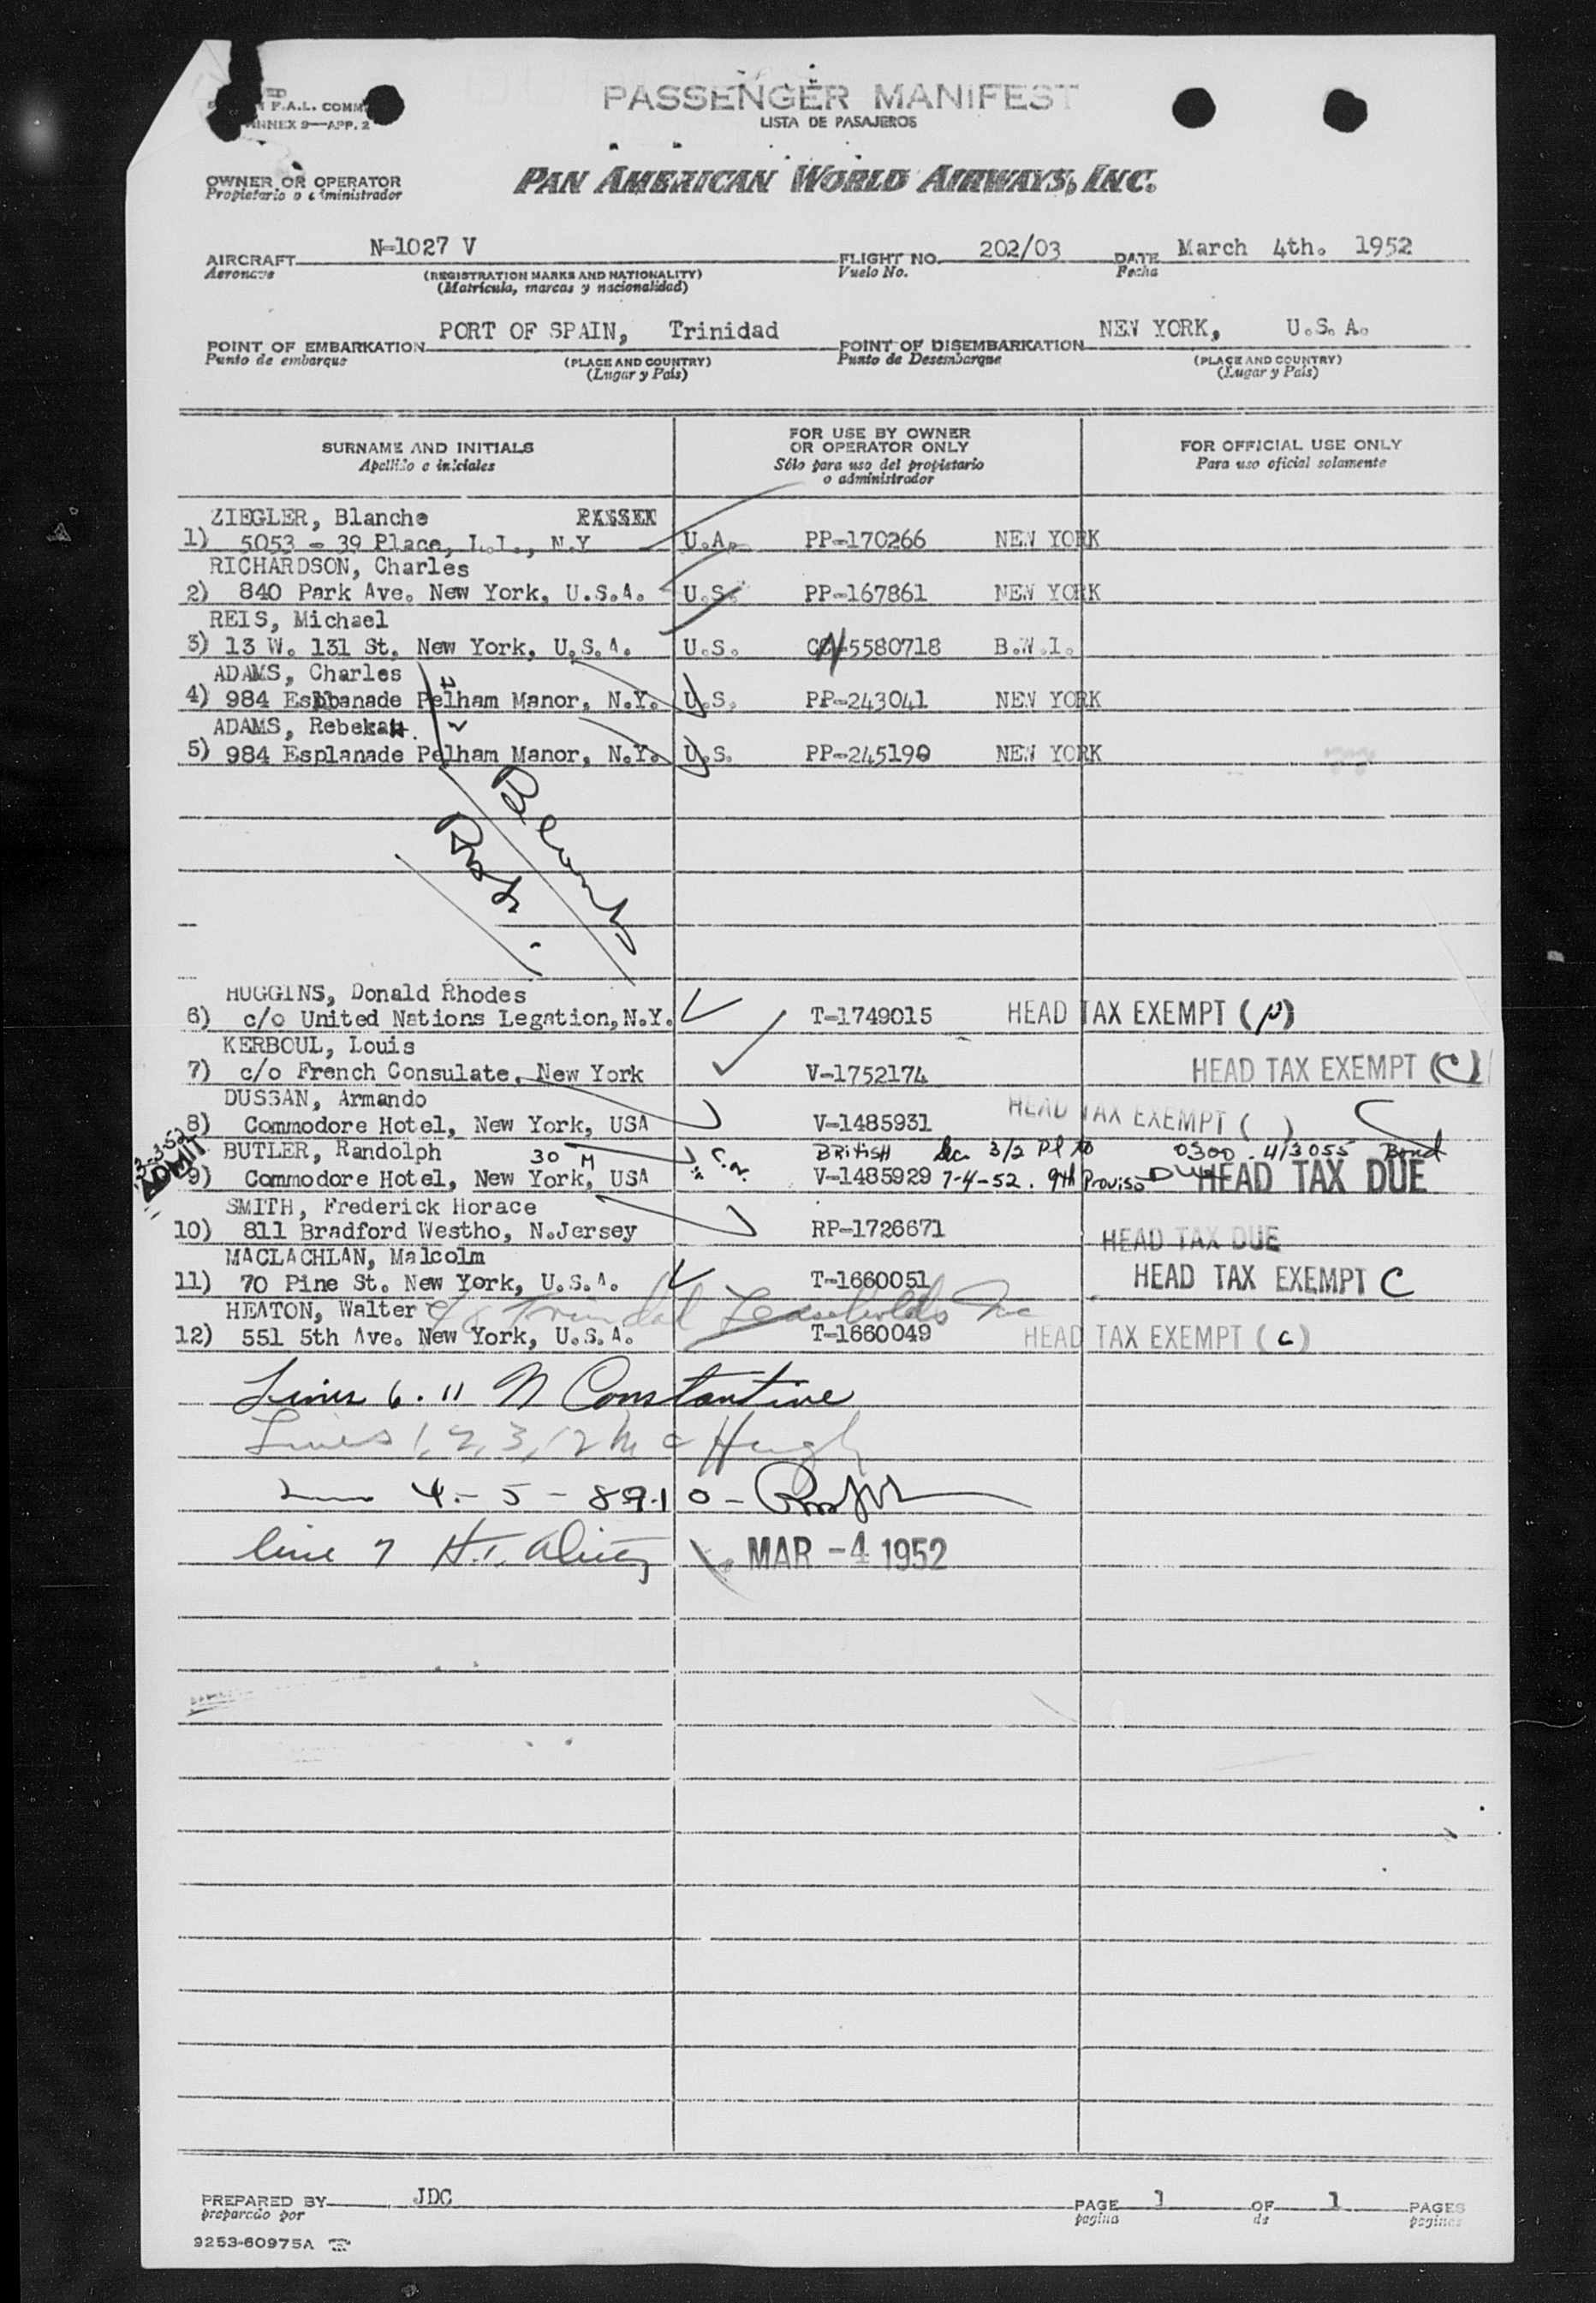 PASSENGER MANIFEST
LISTA DE PASAJEROS
F.A.L. COMM
ANNEX 9—APP. 2
OWNER OR OPERATOR
PAN AMERICAN WORLD AIRWAYS, INC.
AIRCRAFT N-1027 V FLIGHT NO. 202/03 DATE March 4th. 1952
Aeronave (REGISTRATION MARKS AND NATIONALITY) Vuelo No. Fecha
(Matrícula, marcas y nacionalidad)
POINT OF EMBARKATION PORT OF SPAIN, Trinidad POINT OF DISEMBARKATION NEW YORK, U.S.A.
Punto de embarque (PLACE AND COUNTRY) Punto de Desembarque (PLACE AND COUNTRY)
(Lugar y País) (Lugar y País)
SURNAME AND INITIALS FOR USE BY OWNER OR OPERATOR ONLY FOR OFFICIAL USE ONLY
Apellido e iniciales Sólo para uso del propietario o administrador Para uso oficial solamente
ZIEGLER, Blanche
1) 5053 - 39 Place, L.I., N.Y U.A. PP-170266 NEW YORK
RICHARDSON, Charles
2) 840 Park Ave. New York, U.S.A. U.S. PP-167861 NEW YORK
REIS, Michael
3) 13 W. 131 St. New York, U.S.A. U.S. 5580718 B.W.I.
ADAMS, Charles
4) 984 Esplanade Pelham Manor, N.Y. U.S. PP-243041 NEW YORK
ADAMS, Rebekah
5) 984 Esplanade Pelham Manor, N.Y. U.S. PP-245190 NEW YORK
HUGGINS, Donald Rhodes
6) c/o United Nations Legation, N.Y. T-1749015 HEAD TAX EXEMPT (P)
KERBOUL, Louis
7) c/o French Consulate, New York V-1752174 HEAD TAX EXEMPT (C)
DUSSAN, Armando
8) Commodore Hotel, New York, USA V-1485931 HEAD TAX EXEMPT ( )
BUTLER, Randolph 30 M BRITISH Sec. 3/2 0300 413055 Bond
ADMIT
9) Commodore Hotel, New York, USA V-1485929 7-4-52. 9th Proviso HEAD TAX DUE
SMITH, Frederick Horace
10) 811 Bradford Westho, N.Jersey RP-1726671 HEAD TAX DUE
MACLACHLAN, Malcolm
11) 70 Pine St. New York, U.S.A. T-1660051 HEAD TAX EXEMPT C
HEATON, Walter c/o Trinidad Leaseholds Inc
12) 551 5th Ave. New York, U.S.A. T-1660049 HEAD TAX EXEMPT (C)
Lines 6. 11 N Constantine
Lines 1, 2, 3, 12 McHugh
4 - 5 - 8 9-10 -
line 7 H.T.
MAR -4 1952
PREPARED BY JDC PAGE 1 OF 1 PAGES
preparado por pagina de paginas
9253-60975A